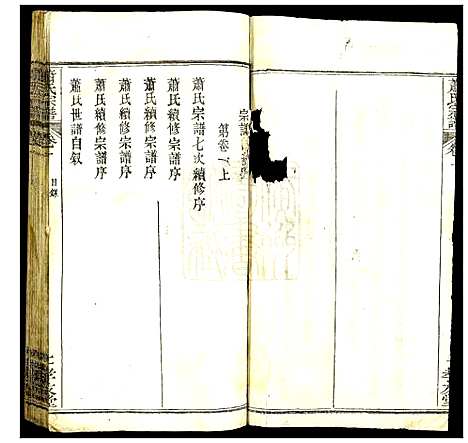 蕭氏宗譜
卷一
宗譜
第卷一上
蕭氏宗譜七次續修序
蕭氏續修宗譜序
蕭氏續修宗譜序
蕭氏續修宗譜序
蕭氏續修宗譜序
蕭氏世譜自叙
蕭氏宗譜
卷一
目錄